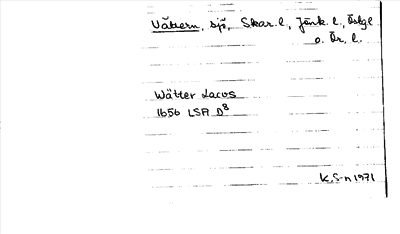 Vättern, sjö, Skar. l., Jönk. l., Östgl
o. Ör. l.
Wätter Lacus
1656 LSA D8
K.S-n 1971